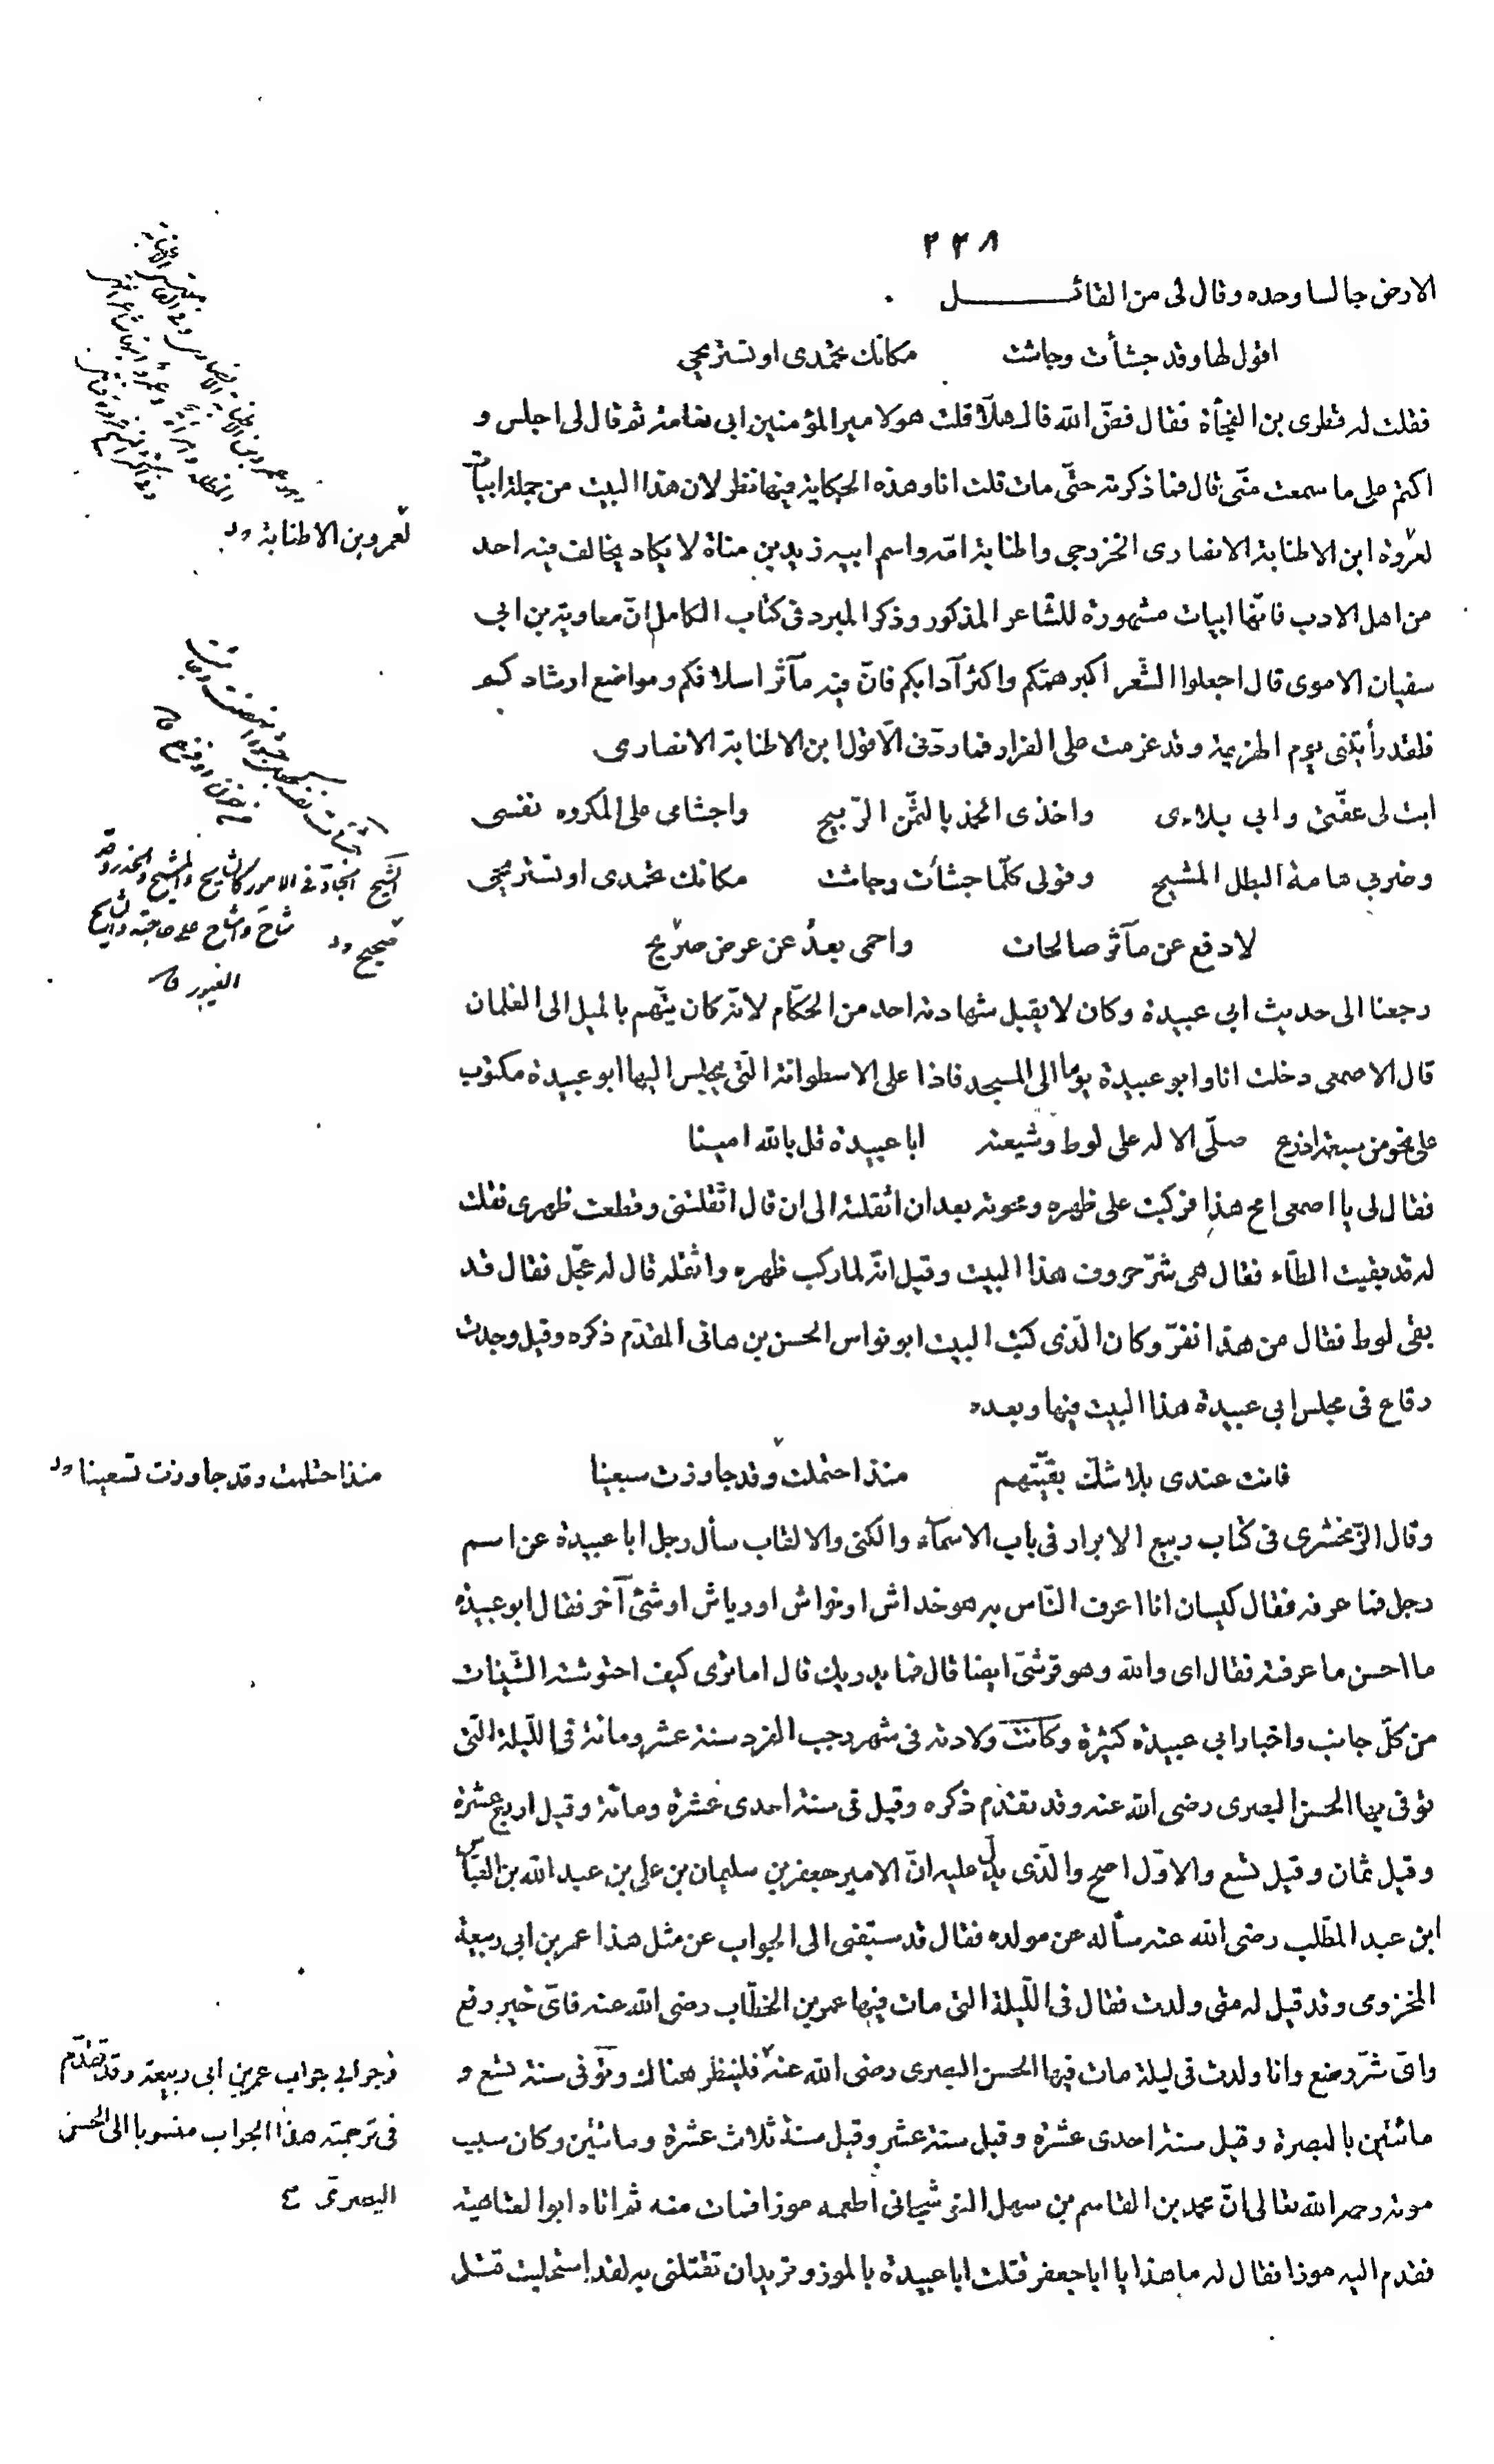 ٢٣٨
الارض جالسا وحده وقال لى من القائـــــــل
اقول لها وقد جشأت وجاشت مكانك تحمدى او تستريحى
فقلت له قطرى بن الفجأة فقال فضّ الله فاك هلّا قلت هو لامير المؤمنين ابى نعامة ثم قال لى اجلس و
اكتم على ما سمعت منّى قال فما ذكرته حتّى مات قلت انا وهذه الحكاية فيها نظر لان هذا البيت من جملة ابيات
لعروة ابن الاطنابة الانصارى الخزرجى والطنابة امّه واسم ابيه زيد بن مناة لا يكاد يخالف فيه احد
من اهل الادب فانّها ابيات مشهورة للشّاعر المذكور وذكر المبرد فى كتاب الكامل انّ معاوية بن ابى
سفيان الاموى قال اجعلوا الشّعر اكبر همتكم واكثر آدابكم فانّ فيه مآثر اسلافكم ومواضع ارشادكم
فلقد رأيتنى يوم الهزيمة وقد عزمت على الفرار فما ردّنى الّا قول ابن الاطنابة الانصارى
ابت لى عفّتى وابى بلاءى واخذى الحمد بالثّمن الرّبيح واجشامى على المكروه نفسى
وضربى هامة البطل المشيح وقولى كلّما جشأت وجاشت مكانك تحمدى او تستريحى
لادفع عن مآثر صالحات واحمى بعدُ عن عرض صريح
رجعنا الى حديث ابى عبيدة وكان لا يقبل شهادته احد من الحكّام لانّه كان يتّهم بالميل الى الغلمان
قال الاصمعى دخلت انا وابو عبيدة يوما الى المسجد فاذا على الاسطوانة الّتى يجلس اليها ابو عبيدة مكتوب
على نحو من سبعة اذرع صلّى الاله على لوط وشيعته ابا عبيدة قل بالله امينا
فقال لى يا اصمعى امح هذا فركبت على ظهره ومحوته بعد ان اثقلته الى ان قال اثقلتنى وقطعت ظهرى فقلت
له قد بقيت الطّاء فقال هى شرّ حروف هذا البيت وقيل انّه لما ركب ظهره واثقله قال له عجّل فقال قد
بقى لوط فقال من هذا نفرّ وكان الّذى كتب البيت ابو نواس الحسن بن هانى المقدّم ذكره وقيل وجدت
رقاع فى مجلس ابى عبيدة هذا البيت فيها وبعده
فانت عندى بلا شكّ بقيّتهم منذ احتملت وقد جاوزت سبعينا
وقال الزّمخشرى فى كتاب ربيع الابرار فى باب الاسمآء والكنى والالقاب سأل رجل ابا عبيدة عن اسم
رجل فما عرفه فقال كيسان انا اعرف النّاس به هو خداش او خواش او رياش او شئ آخر فقال ابو عبيدة
ما احسن ما عرفته فقال اى والله وهو قرشىّ ايضا قال فما يدريك قال اما ترى كيف احتوشته الشّينات
من كلّ جانب واخبار ابى عبيدة كثيرة وكانت ولادته فى شهر رجب الفرد سنة عشر ومائة فى اللّيلة الّتى
توفى بها الحسن البصرى رضى الله عنه وقد تقدّم ذكره وقيل فى سنة احدى عشرة ومائة وقيل اربع عشرة
وقيل ثمان وقيل تسع والاوّل اصح والّذى يدلّ عليه انّ الامير جعفر بن سليمان بن على بن عبد الله بن العبّاس
ابن عبد المطّلب رضى الله عنه سأله عن مولده فقال قد سبقنى الى الجواب عن مثل هذا عمر بن ابى ربيعة
المخزومى وقد قيل له متى ولدت فقال فى اللّيلة التى مات فيها عمر بن الخطّاب رضى الله عنه فاىّ خير رفع
واىّ شرّ وضع وانا ولدت فى ليلة مات فيها الحسن البصرى رضى الله عنه فلينظر هناك وتوفى سنة تسع و
مائتين بالبصرة وقيل سنة احدى عشرة وقيل سنة عشر وقيل سنة ثلاث عشرة ومائتين وكان سبب
موته رحمه الله تعالى انّ محمد بن القاسم بن سهل النوشجانى اطعمه موزا فمات منه ثم اتاه ابو العتاهية
فقدم اليه موزا فقال له ما هذا يا ابا جعفر قتلت ابا عبيدة بالموز وتريد ان تقتلنى به لقد استحليت قتل
لعمرو بن الاطنابة
الشيح
شاح واشاح على حاجته
صحيح
الغيور
منذ احتلمت وقد جاوزت تسعينا
فجوابى جواب عمر بن ابى ربيعة وقد تقدّم
فى ترجمته هذا الجواب منسوبا الى الحسن
البصرىّ